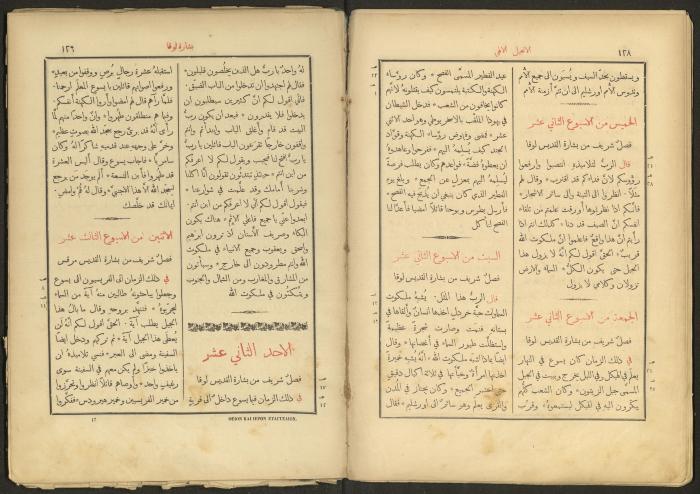 الانجيل الالهي
١٢٨
ويسقطون بحدّ السيف ويُسبَون الى جميع الامم
وتدوس الامم اورشليم الى ان تتمّ ازمنة الامم
الخميس من الاسبوع الثاني عشر
فصلٌ شريف من بشارة القديس لوقا
قال الربُّ لتلاميذه انتصبوا وارفعوا
رؤُوسكم لانَّ فداءكم قد اقترب* وقال لهم
مثلاً* انظروا الى التينة والى سائر الاشجار*
فانكم اذا نظرتموها أورقت علمتم من تلقاءِ
انفسكم انَّ الصيف قد دنا* كذلك انتم اذا
رأَيتم انَّ هذا واقعٌ فاعلموا انَّ ملكوت الله
قريبٌ* الحقَّ اقول لكم انهُ لا يزول هذا
الجيل حتى يكون الكلُّ* السماءُ والارض
تزولان وكلامي لا يزول
الجمعة من الاسبوع الثاني عشر
فصلٌ شريف من بشارة القديس لوقا
في ذلك الزمان كان يسوع في النهار
يعلّم في الهيكل وفي الليل يخرج ويبيت في الجبل
المسمَّى جبل الزيتون* وكان الشعب كلُّهم
يبكّرون اليهِ في الهيكل ليستمعوهُ* وقرُب
عيد الفطير المسمَّى الفصح* وكان رؤَساء
الكهنة والكتبة يلتمسون كيف يقتلونهُ لانهم
كانوا يخافون من الشعب* فدخل الشيطان
في يهوذا الملقَّب بالاسخريوطي وهو احد الاثني
عشر* فمضى وفاوض رؤَساء الكهنة وقوَّاد
الجند كيف يُسلمهُ اليهم* ففرحوا وعاهدوهُ
ان يعطوهُ فضةً* فواعدهم وكان يطلب فرصةً
ليُسلمهُ اليهم بمعزلٍ عن الجمع* وبلغ يوم
الفطير الذي كان ينبغي ان يُذبح فيهِ الفصح*
فأرسل بطرس ويوحنا قائلاً امضيا فأَعِدَّا لنا
الفصح لنأكل
السبت من الاسبوع الثاني عشر
فصلٌ شريف من بشارة القديس لوقا
قال الربُّ هذا المثل* يُشبه ملكوت
السماوات حبَّة خردلٍ أخذها انسانٌ وألقاها في
بستانهِ فنمت وصارت شجرةً عظيمةً
واستظلَّت طيور السماء في أغصانها* وقال
ايضاً بماذا اشبّه ملكوت الله* انهُ يُشبه خميرةً
اخذتها امرأَةٌ وخبَّأَتها في ثلاثة اكيال دقيقٍ
حتى اختمر الجميع* وكان يجتاز في المدن
والقرى يعلّم وهو سائرٌ الى اورشليم* فقال
بشارة لوقا
١٢٦
لهُ واحدٌ يا ربُّ هل الذين يخلُصون قليلون*
فقال لهم اجتهدوا ان تدخلوا من الباب الضيق*
فاني اقول لكم انَّ كثيرين سيطلبون ان
يدخلوا فلا يقدرون* فبعد ان يكون ربُّ
البيت قد قام وأغلق الباب وابتدأتم وانتم
واقفون خارجًا تقرعون الباب قائلين يا ربُّ
يا ربُّ افتح لنا فيجيب ويقول لكم لا اعرفكم
من اين انتم* حينئذٍ تبتدئون تقولون أنَّا اكلنا
وشربنا أمامك وقد علَّمت في شوارعنا*
فيقول أقول لكم اني لا اعرفكم من اين انتم*
ابعدوا عني يا جميع فاعلي الاثم* هناك يكون
البكاء وصريف الاسنان اذ ترون ابرهيم
واسحق ويعقوب وجميع الانبياء في ملكوت
الله وانتم مطرودون الى خارج* وسيأتون
من المشارق والمغارب ومن الشمال والجنوب
ويتّكئون في ملكوت الله
الاحد الثاني عشر
فصلٌ شريف من بشارة القديس لوقا
في ذلك الزمان فيما يسوع داخلٌ الى قريةٍ
استقبلهُ عشرة رجالٍ برصٍ ووقفوا من بعيدٍ*
ورفعوا اصواتهم قائلين يا يسوع المعلّم ارحمنا*
فلمَّا رآهم قال لهم امضوا وأَروا الكهنة أنفسكم*
وفيما هم منطلقون طهُروا* وإنَّ واحدًا منهم لمَّا
رأى أنهُ قد برئ رجع يمجد الله بصوتٍ عظيمٍ*
وخرَّ على وجههِ عند قدميهِ شاكرًا لهُ وكان
سامريًّا* فأجاب يسوع وقال أليس العشرة
قد طهُروا فأين التسعة* ألم يوجد من يرجع
ليمجد الله الاَّ هذا الاجنبيُّ* وقال لهُ قُمْ وامضِ
ايمانك قد خلَّصك
الاثنين من الاسبوع الثالث عشر
فصلٌ شريف من بشارة القديس مرقس
في ذلك الزمان اتى الفريسيون الى يسوع
وجعلوا يباحثونهُ طالبين منهُ آيةً من السماء
ليجرّبوهُ* فتنهَّد بروحهِ وقال ما بال هذا
الجيل يطلب آيةً* الحقَّ اقول لكم أنهُ لن
يعطى هذا الجيل آيةً* ثم تركهم ودخل ايضًا
السفينة ومضى الى العبر* فنسي تلاميذهُ ان
يأخذوا خبزًا ولم يكن معهم في السفينة سوى
رغيفٍ واحدٍ* وأوصاهم قائلاً انظروا وتحرَّزوا
من خمير الفريسيين وخمير هيرودس* ففكَّروا
17
ΘΕΙΟΝ ΚΑΙ ΙΕΡΟΝ ΕΥΑΓΓΕΛΙΟΝ.